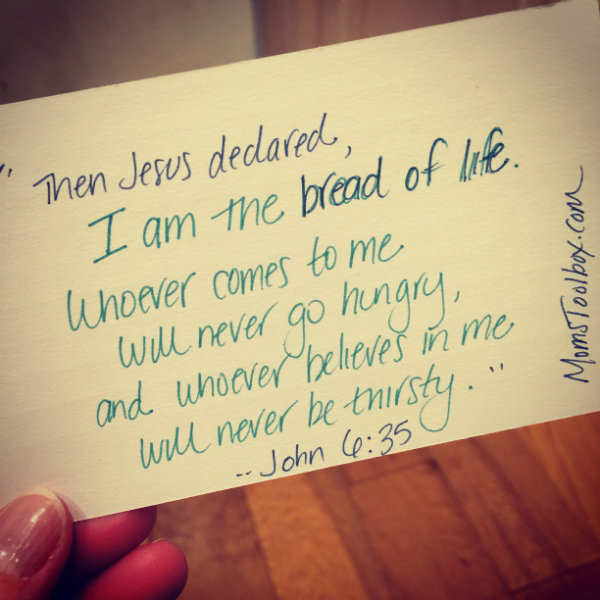 " Then Jesus declared,
I am the bread of life.
Whoever comes to me
will never go hungry,
and whoever believes in me
will never be thirsty."
-- John 6:35
MomsToolbox.com